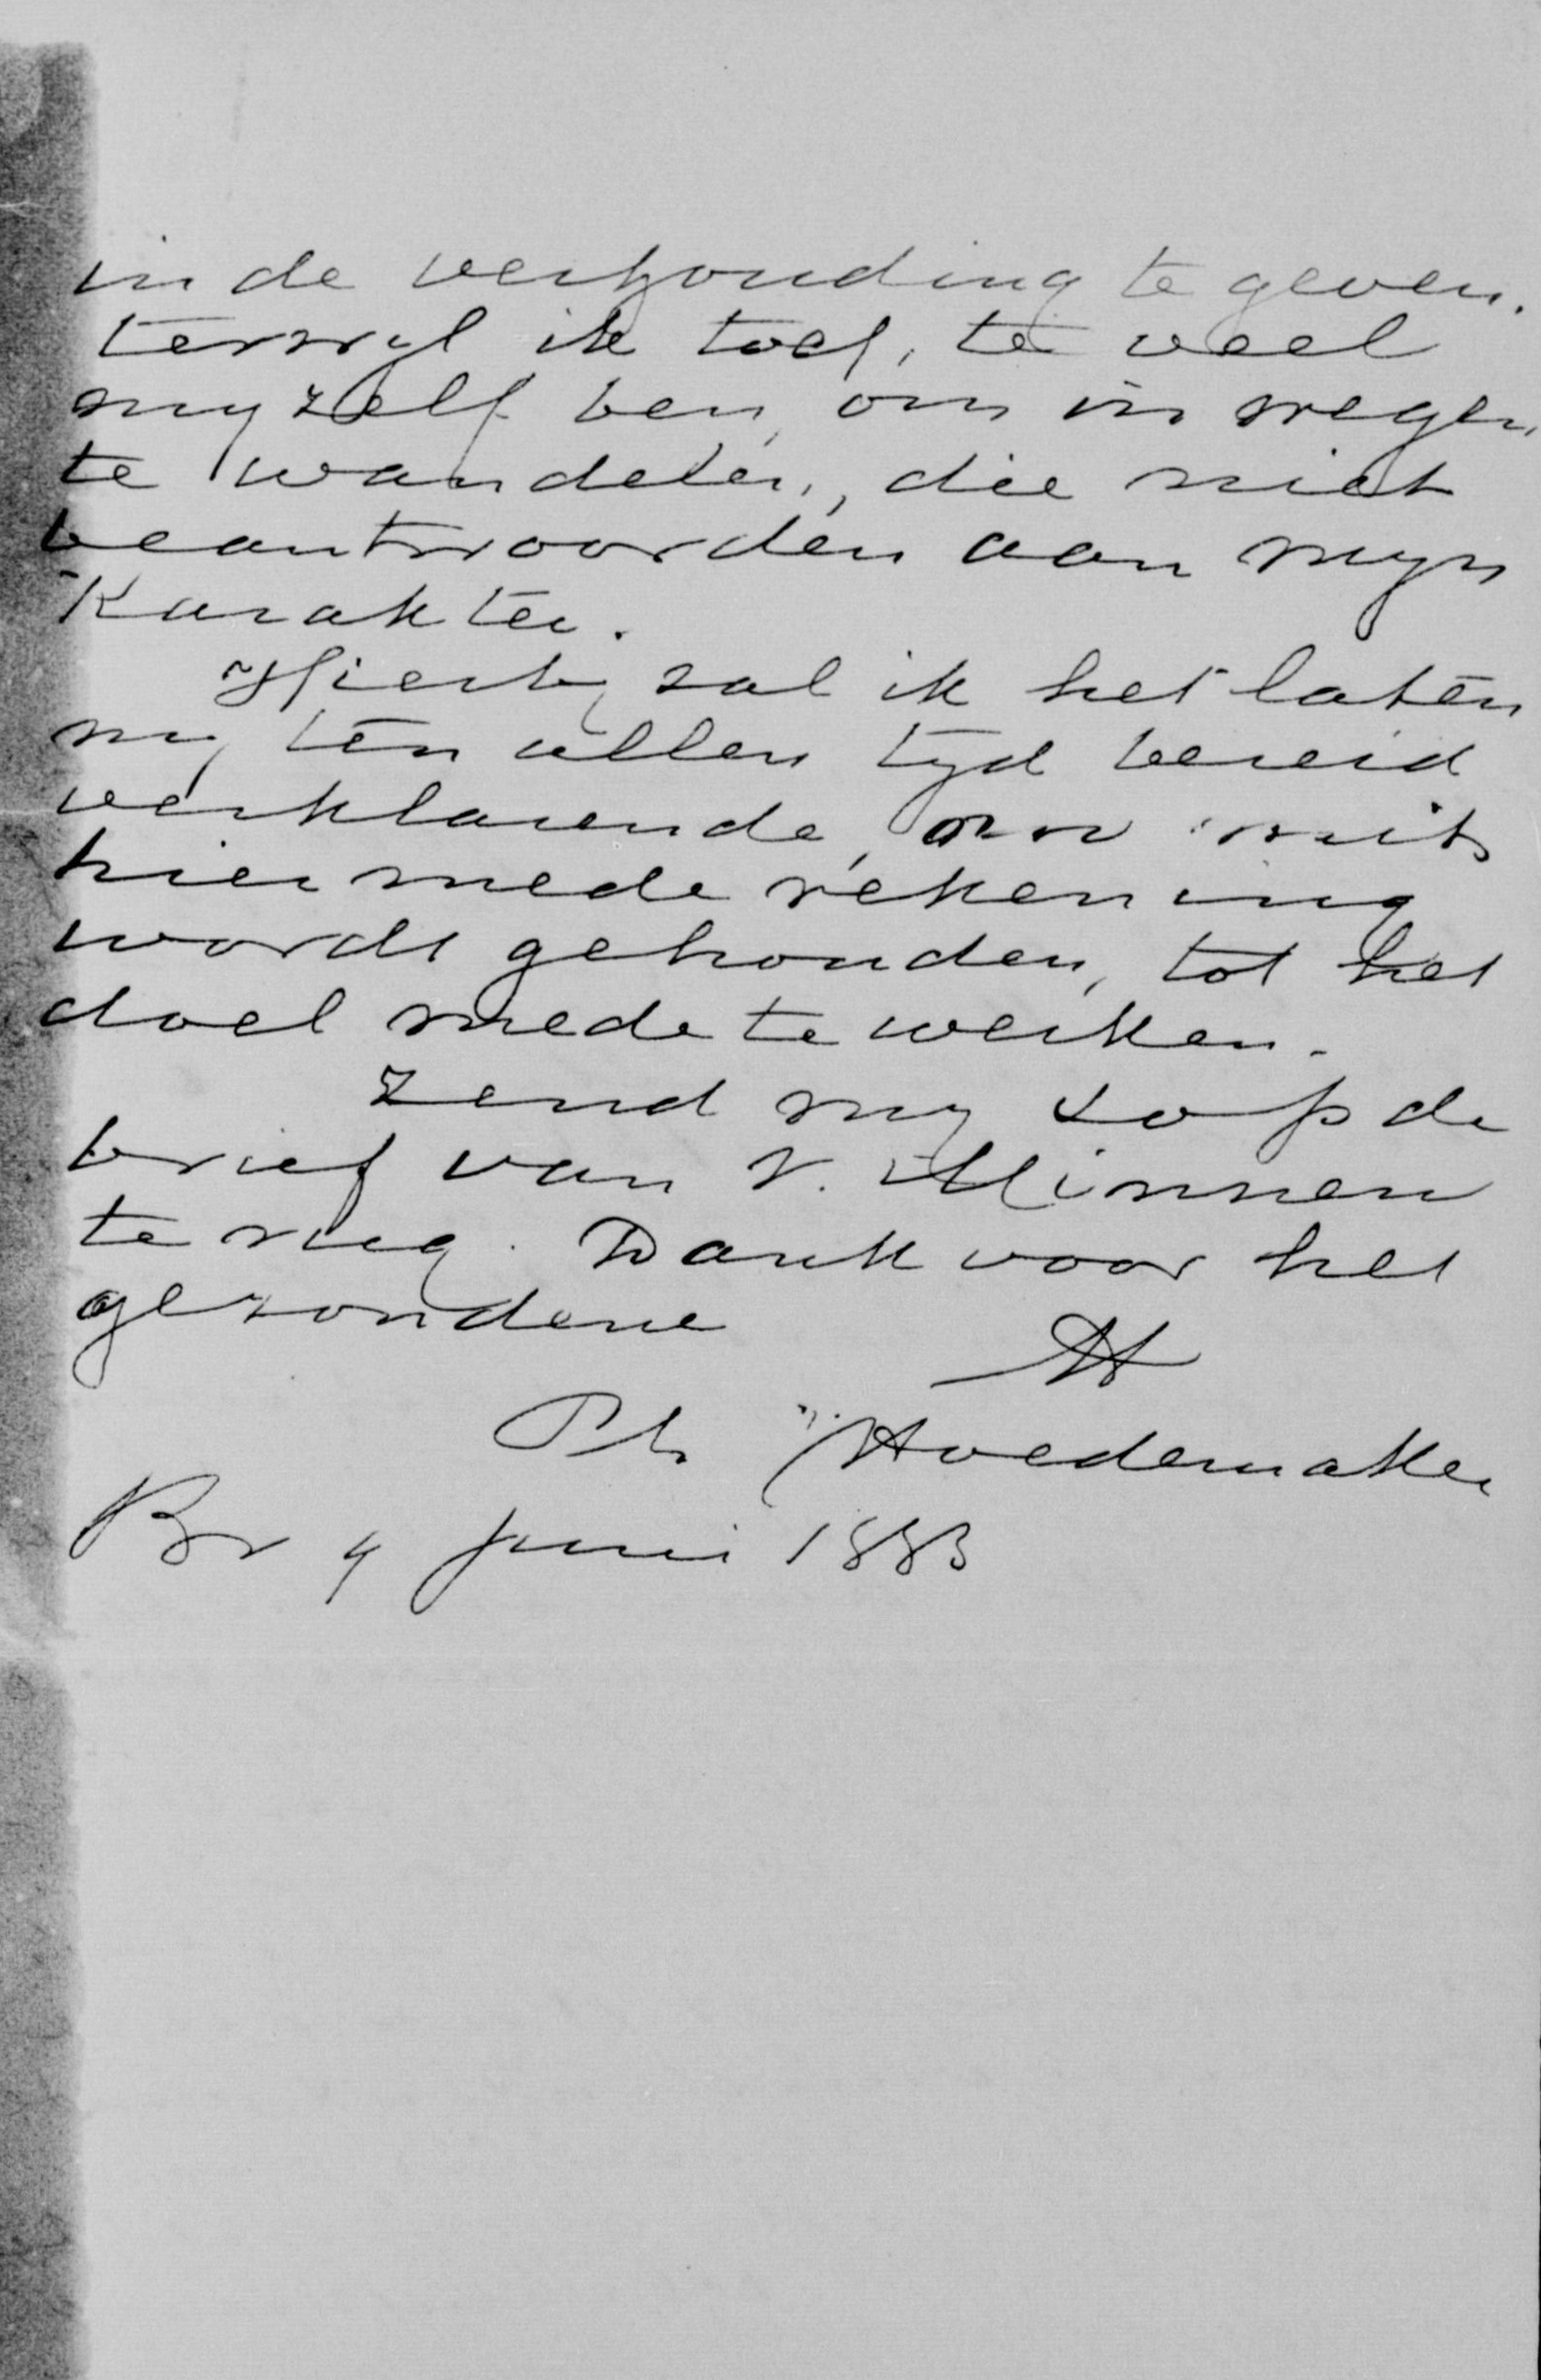 in de verhouding te geven.
terwyl ik toch, te veel
myzelf ben, om in wegen
te wandelen, die niet
beantwoorden aan myn
Karakter.
Hierby zal ik het laten
my ten allen tyd bereid
verklarende, om mits
hiermede rekening
wordt gehouden, tot het
doel mede te werken.
Zend my s v p de
brief van v. Minnen
terug. Dank voor het
gezondene
tt
Ph Hoedemaker
Br 4 Juni 1883